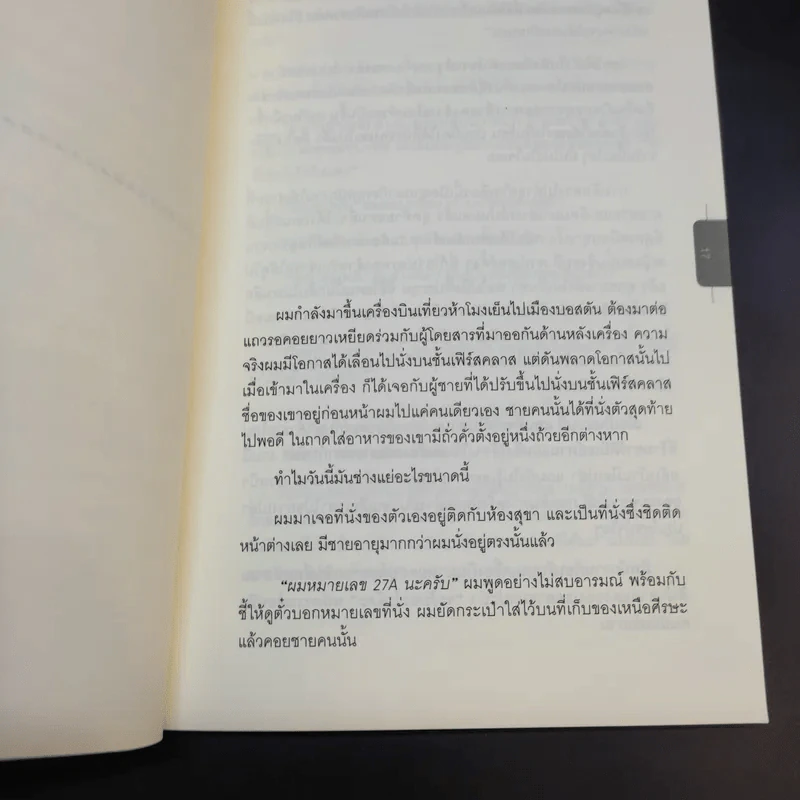 ผมกำลังมาขึ้นเครื่องบินเที่ยวห้าโมงเย็นไปเมืองบอสตัน ต้องมาต่อ
แถวรอคอยยาวเหยียดร่วมกับผู้โดยสารที่มาออกันด้านหลังเครื่อง ความ
จริงผมมีโอกาสได้เลื่อนไปนั่งบนชั้นเฟิร์สคลาส แต่ดันพลาดโอกาสนั้นไป
เมื่อเข้ามาในเครื่อง ก็ได้เจอกับผู้ชายที่ได้ปรับขึ้นไปนั่งบนชั้นเฟิร์สคลาส
ชื่อของเขาอยู่ก่อนหน้าผมไปแค่คนเดียวเอง ชายคนนั้นได้ที่นั่งตัวสุดท้าย
ไปพอดี ในถาดใส่อาหารของเขามีถั่วคั่วตั้งอยู่หนึ่งถ้วยอีกต่างหาก
ทำไมวันนี้มันช่างแย่อะไรขนาดนี้
ผมมาเจอที่นั่งของตัวเองอยู่ติดกับห้องสุขา และเป็นที่นั่งซึ่งชิดติด
หน้าต่างเลย มีชายอายุมากกว่าผมนั่งอยู่ตรงนั้นแล้ว
“ผมหมายเลข 27A นะครับ” ผมพูดอย่างไม่สบอารมณ์ พร้อมกับ
ชี้ให้ดูตั๋วบอกหมายเลขที่นั่ง ผมยัดกระเป๋าใส่ไว้บนที่เก็บของเหนือศีรษะ
แล้วคอยชายคนนั้น
17